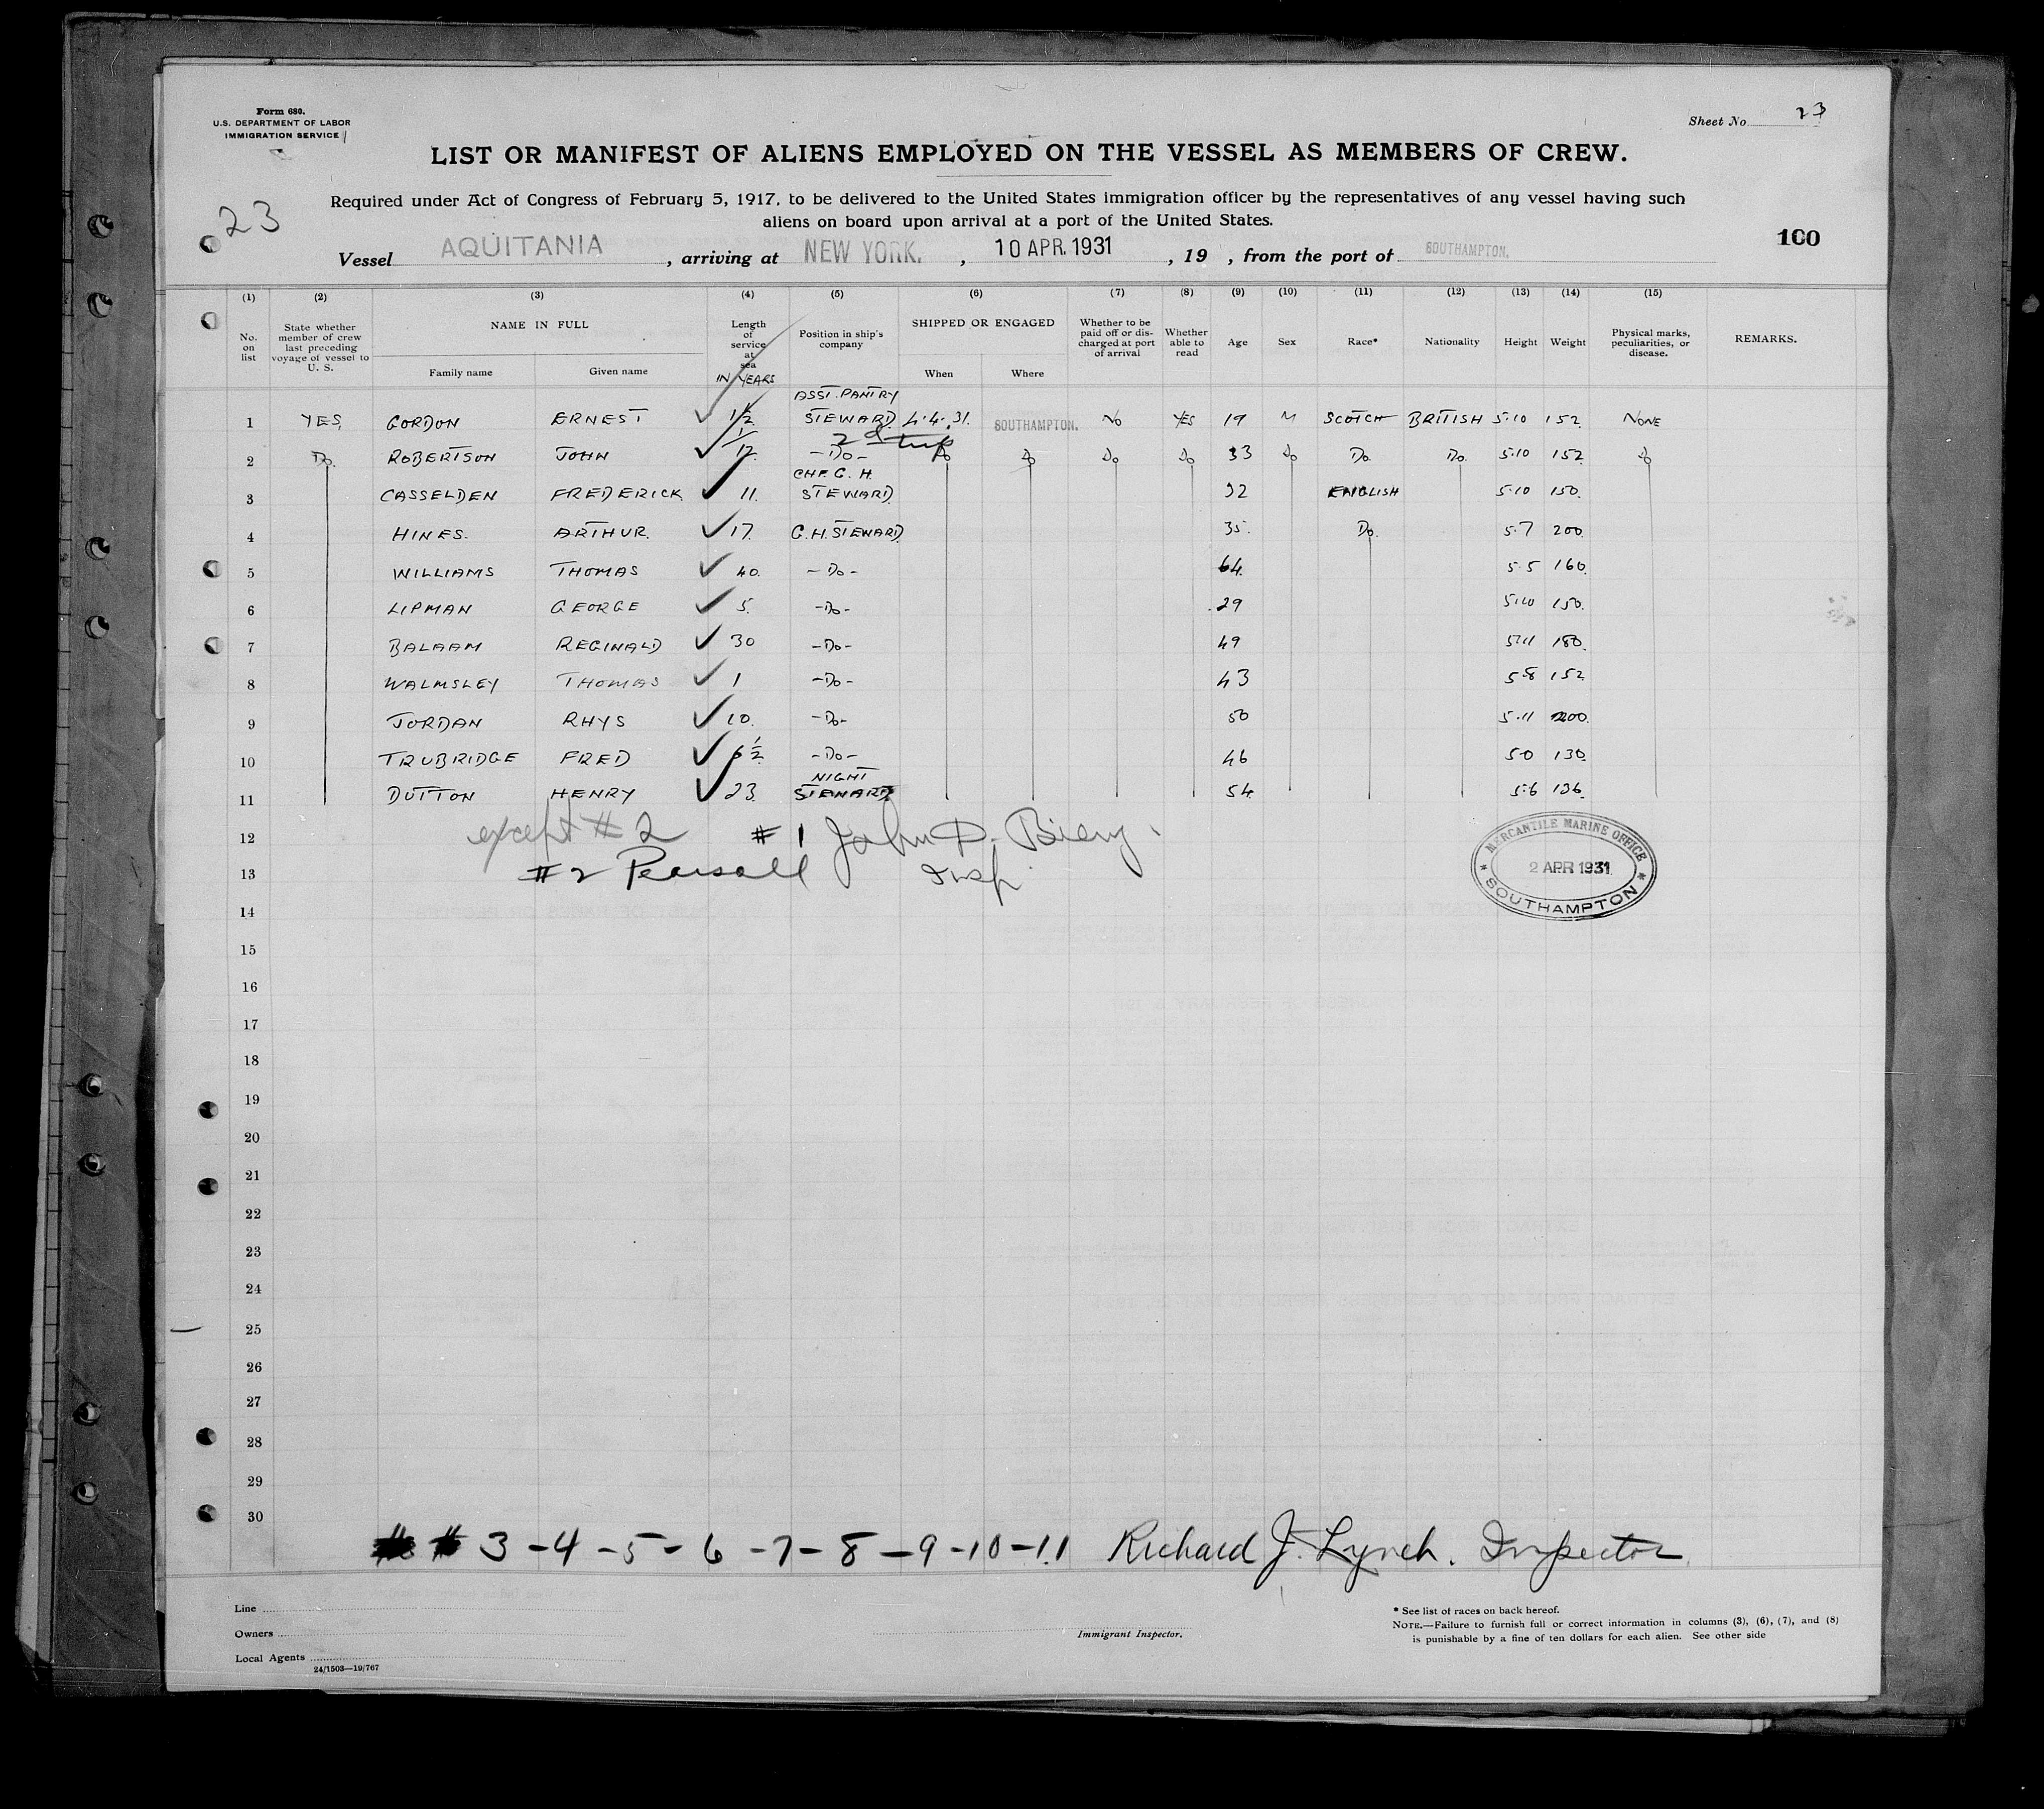 Form 680.
U.S. DEPARTMENT OF LABOR
IMMIGRATION SERVICE
Sheet No 23
LIST OR MANIFEST OF ALIENS EMPLOYED ON THE VESSEL AS MEMBERS OF CREW.
Required under Act of Congress of February 5, 1917, to be delivered to the United States immigration officer by the representatives of any vessel having such
aliens on board upon arrival at a port of the United States.
23
100
Vessel AQUITANIA, arriving at NEW YORK. , 10 APR. 1931 , 19 , from the port of SOUTHAMPTON.
(1) (2) (3) (4) (5) (6) (7) (8) (9) (10) (11) (12) (13) (14) (15)
No. on list
State whether member of crew last preceding voyage of vessel to U. S.
NAME IN FULL
Family name Given name
Length of service at sea IN YEARS
Position in ship's company
SHIPPED OR ENGAGED
When Where
Whether to be paid off or discharged at port of arrival
Whether able to read
Age
Sex
Race*
Nationality
Height
Weight
Physical marks, peculiarities, or disease.
REMARKS.
1 YES, GORDON ERNEST ✓ 1/2 ASST. PANTRY STEWARD 4.4.31. SOUTHAMPTON. NO YES 19 M SCOTCH BRITISH 5.10 152 NONE
2d trip
2 Do. ROBERTSON JOHN ✓ 1/12 -Do- Do Do Do Do 33 Do Do. Do. 5.10 152 Do
3 CASSELDEN FREDERICK ✓ 11. CHF G. H. STEWARD. 32 ENGLISH 5.10 150.
4 HINES. ARTHUR. ✓ 17. G.H. STEWARD. 35. Do. 5.7 200.
5 WILLIAMS THOMAS ✓ 40. -Do- 64. 5.5 160.
6 LIPMAN GEORGE ✓ 5. -Do- 29 5.10 150.
7 BALAAM REGINALD ✓ 30 -Do- 49 5.11 180.
8 WALMSLEY THOMAS ✓ 1 -Do- 43 5.8 152
9 JORDAN RHYS ✓ 10. -Do- 50 5.11 200.
10 TRUBRIDGE FRED ✓ 6 1/2 -Do- 46 5.0 130.
11 DUTTON HENRY ✓ 23. NIGHT STEWARD 54. 5.6 136.
12 except #2 #1 John D. Bieny.
13 #2 Pearsall Insp.
MERCANTILE MARINE OFFICE
2 APR 1931
SOUTHAMPTON
14
15
16
17
18
19
20
21
22
23
24
25
26
27
28
29
30
# 3 - 4 - 5 - 6 - 7 - 8 - 9 - 10 - 11 Richard J. Lynch. Inspector
Line
Owners
Local Agents
24/1503—19/767
Immigrant Inspector.
* See list of races on back hereof.
NOTE.—Failure to furnish full or correct information in columns (3), (6), (7), and (8)
is punishable by a fine of ten dollars for each alien. See other side